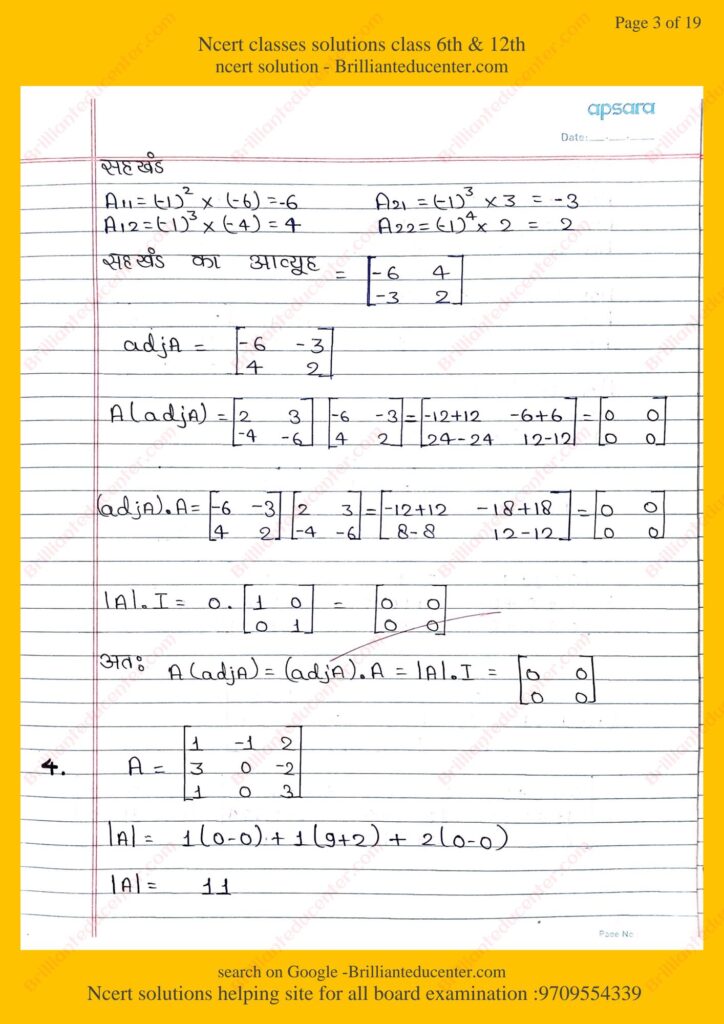 Page 3 of 19
Ncert classes solutions class 6th & 12th
ncert solution - Brillianteducenter.com
apsara
Date:
सहखंड
A11 = (-1)² × (-6) = -6 A21 = (-1)³ × 3 = -3
A12 = (-1)³ × (-4) = 4 A22 = (-1)⁴ × 2 = 2
सहखंड का आव्यूह = [-6 4
-3 2]
adjA = [-6 -3
4 2]
A(adjA) = [2 3 [-6 -3 = [-12+12 -6+6 = [0 0
-4 -6] 4 2] 24-24 12-12] 0 0]
(adjA).A = [-6 -3 [2 3 = [-12+12 -18+18 = [0 0
4 2] -4 -6] 8-8 12-12] 0 0]
|A|.I = 0. [1 0 = [0 0
0 1] 0 0]
अतः A(adjA) = (adjA).A = |A|.I = [0 0
0 0]
4. A = [1 -1 2
3 0 -2
1 0 3]
|A| = 1(0-0) + 1(9+2) + 2(0-0)
|A| = 11
Page No
search on Google -Brillianteducenter.com
Ncert solutions helping site for all board examination :9709554339